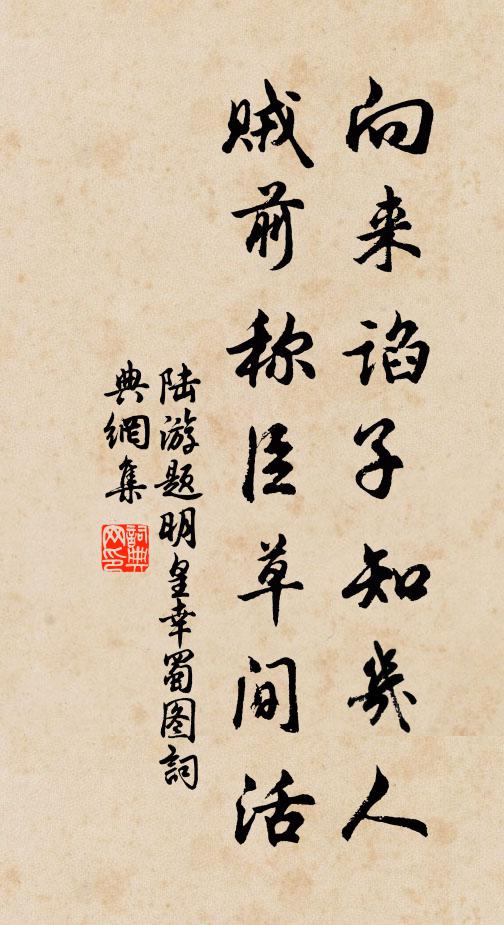 向来谄子知幾人
贼前称臣草间活
陆游题明皇幸蜀图詞
典網集
詞典網印